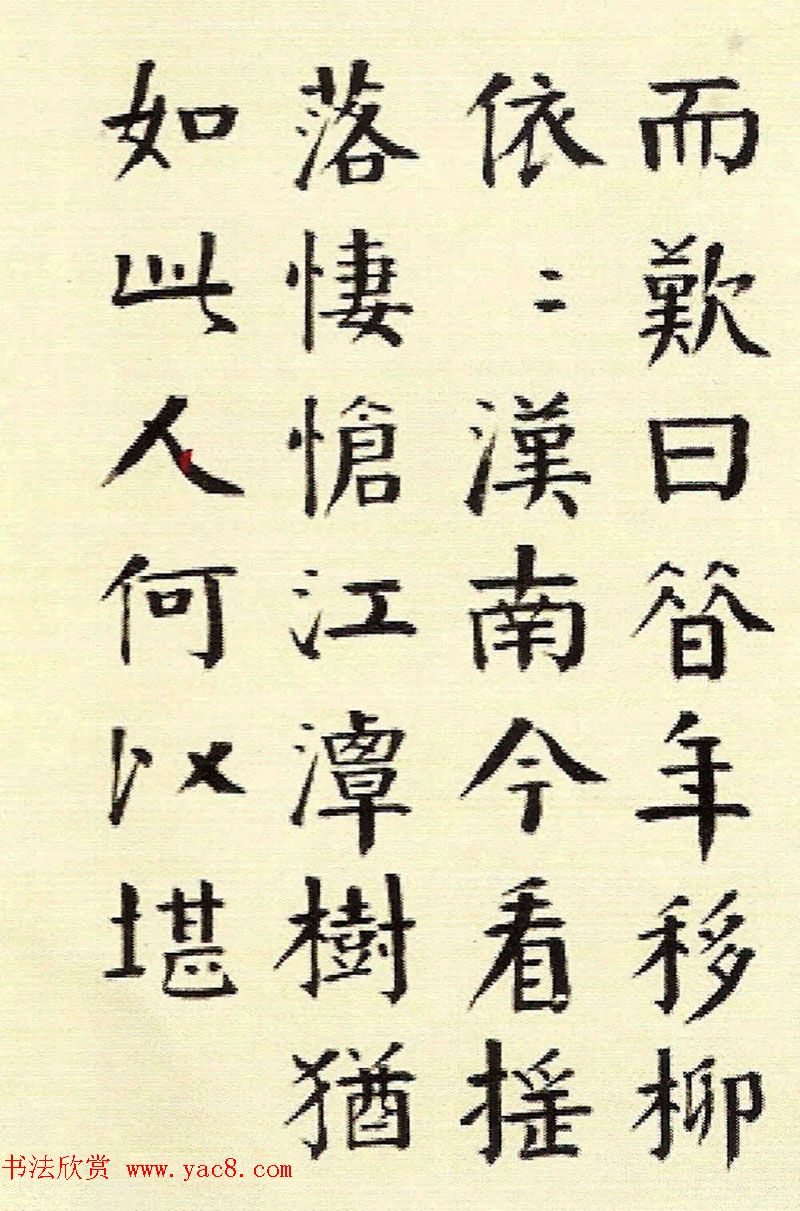 而歎曰昔年移柳
依〻漢南今看搖
落悽愴江潭樹猶
如此人何以堪
书法欣赏 www.yac8.com